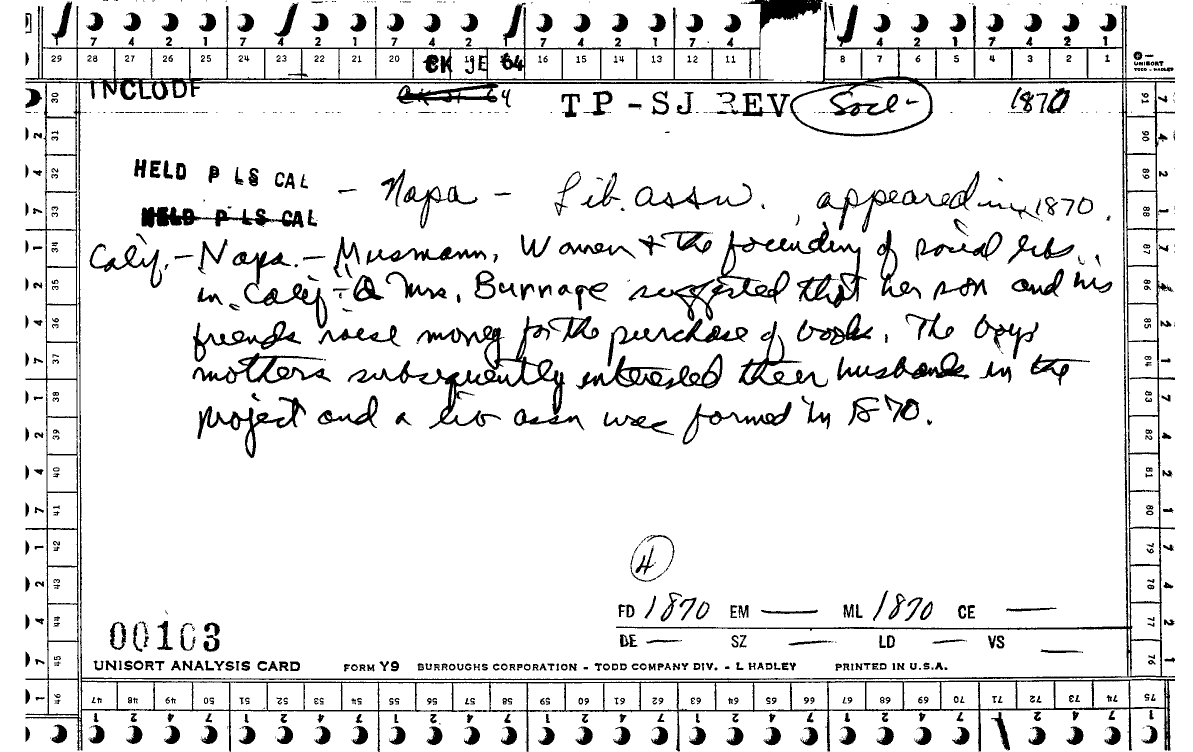 7 4 2 1 7 4 2 1 7 4 2 1 7 4 2 1 7 4 7 4 2 1 7 4 2 1
29 28 27 26 25 24 23 22 21 20 CK JE 64 16 15 14 13 12 11 8 7 6 5 4 3 2 1
UNISORT
TODD - HADLEY
INCLUDE CK JE 64 TP-SJ REV Socl- 1870
HELD P LS CAL - Napa - Lib. assn. , appeared in 1870.
HELD P LS CAL
Calif. - Napa. - Musmann, Women & the founding of social libs.
in Calif - "A Mrs. Burnage suggested that her son and his
friends raise money for the purchase of books. The boys'
mothers subsequently interested their husbands in the
project and a lib assn was formed in 1870.
4
FD 1870 EM — ML 1870 CE —
DE — SZ — LD — VS —
00103
UNISORT ANALYSIS CARD FORM Y9 BURROUGHS CORPORATION - TODD COMPANY DIV. - L HADLEY PRINTED IN U.S.A.
47 48 49 50 51 52 53 54 55 56 57 58 59 60 61 62 63 64 65 66 67 68 69 70 71 72 73 74 75